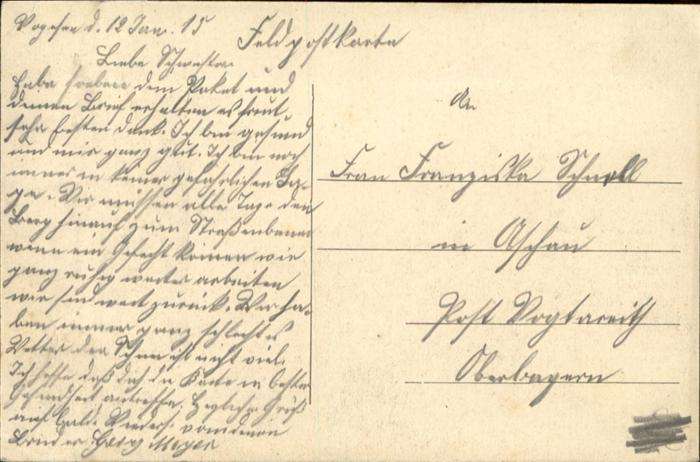 Vogesen d. 12 Jan. 15
Feldpostkarte
Liebe Schwester
Habe soeben dein Paket und
deinen Brief erhalten es freut
sehr besten dank. Ich bin gesund
und mir ganz gut. Ich bin noch
immer in keiner gefährlichen La-
ge. Wir müssen alle Tage den
Berg hinauf zum Straßenbauen
wenn ein Gefecht können wir
ganz ruhig weiter arbeiten
wir sind weit zurück. Wir ha-
ben immer ganz schlechtes
Wetter der Schnee ist nicht viel.
Ich hoffe daß dich die Karte in bester
Gesundheit antreffe. Herzliche Grüß
auf bald. Wiederseh von deinem
Bruder Georg Meyer
An
Frau Franziska Schnell
in Aschau
Post Vogtareith
Oberbayern